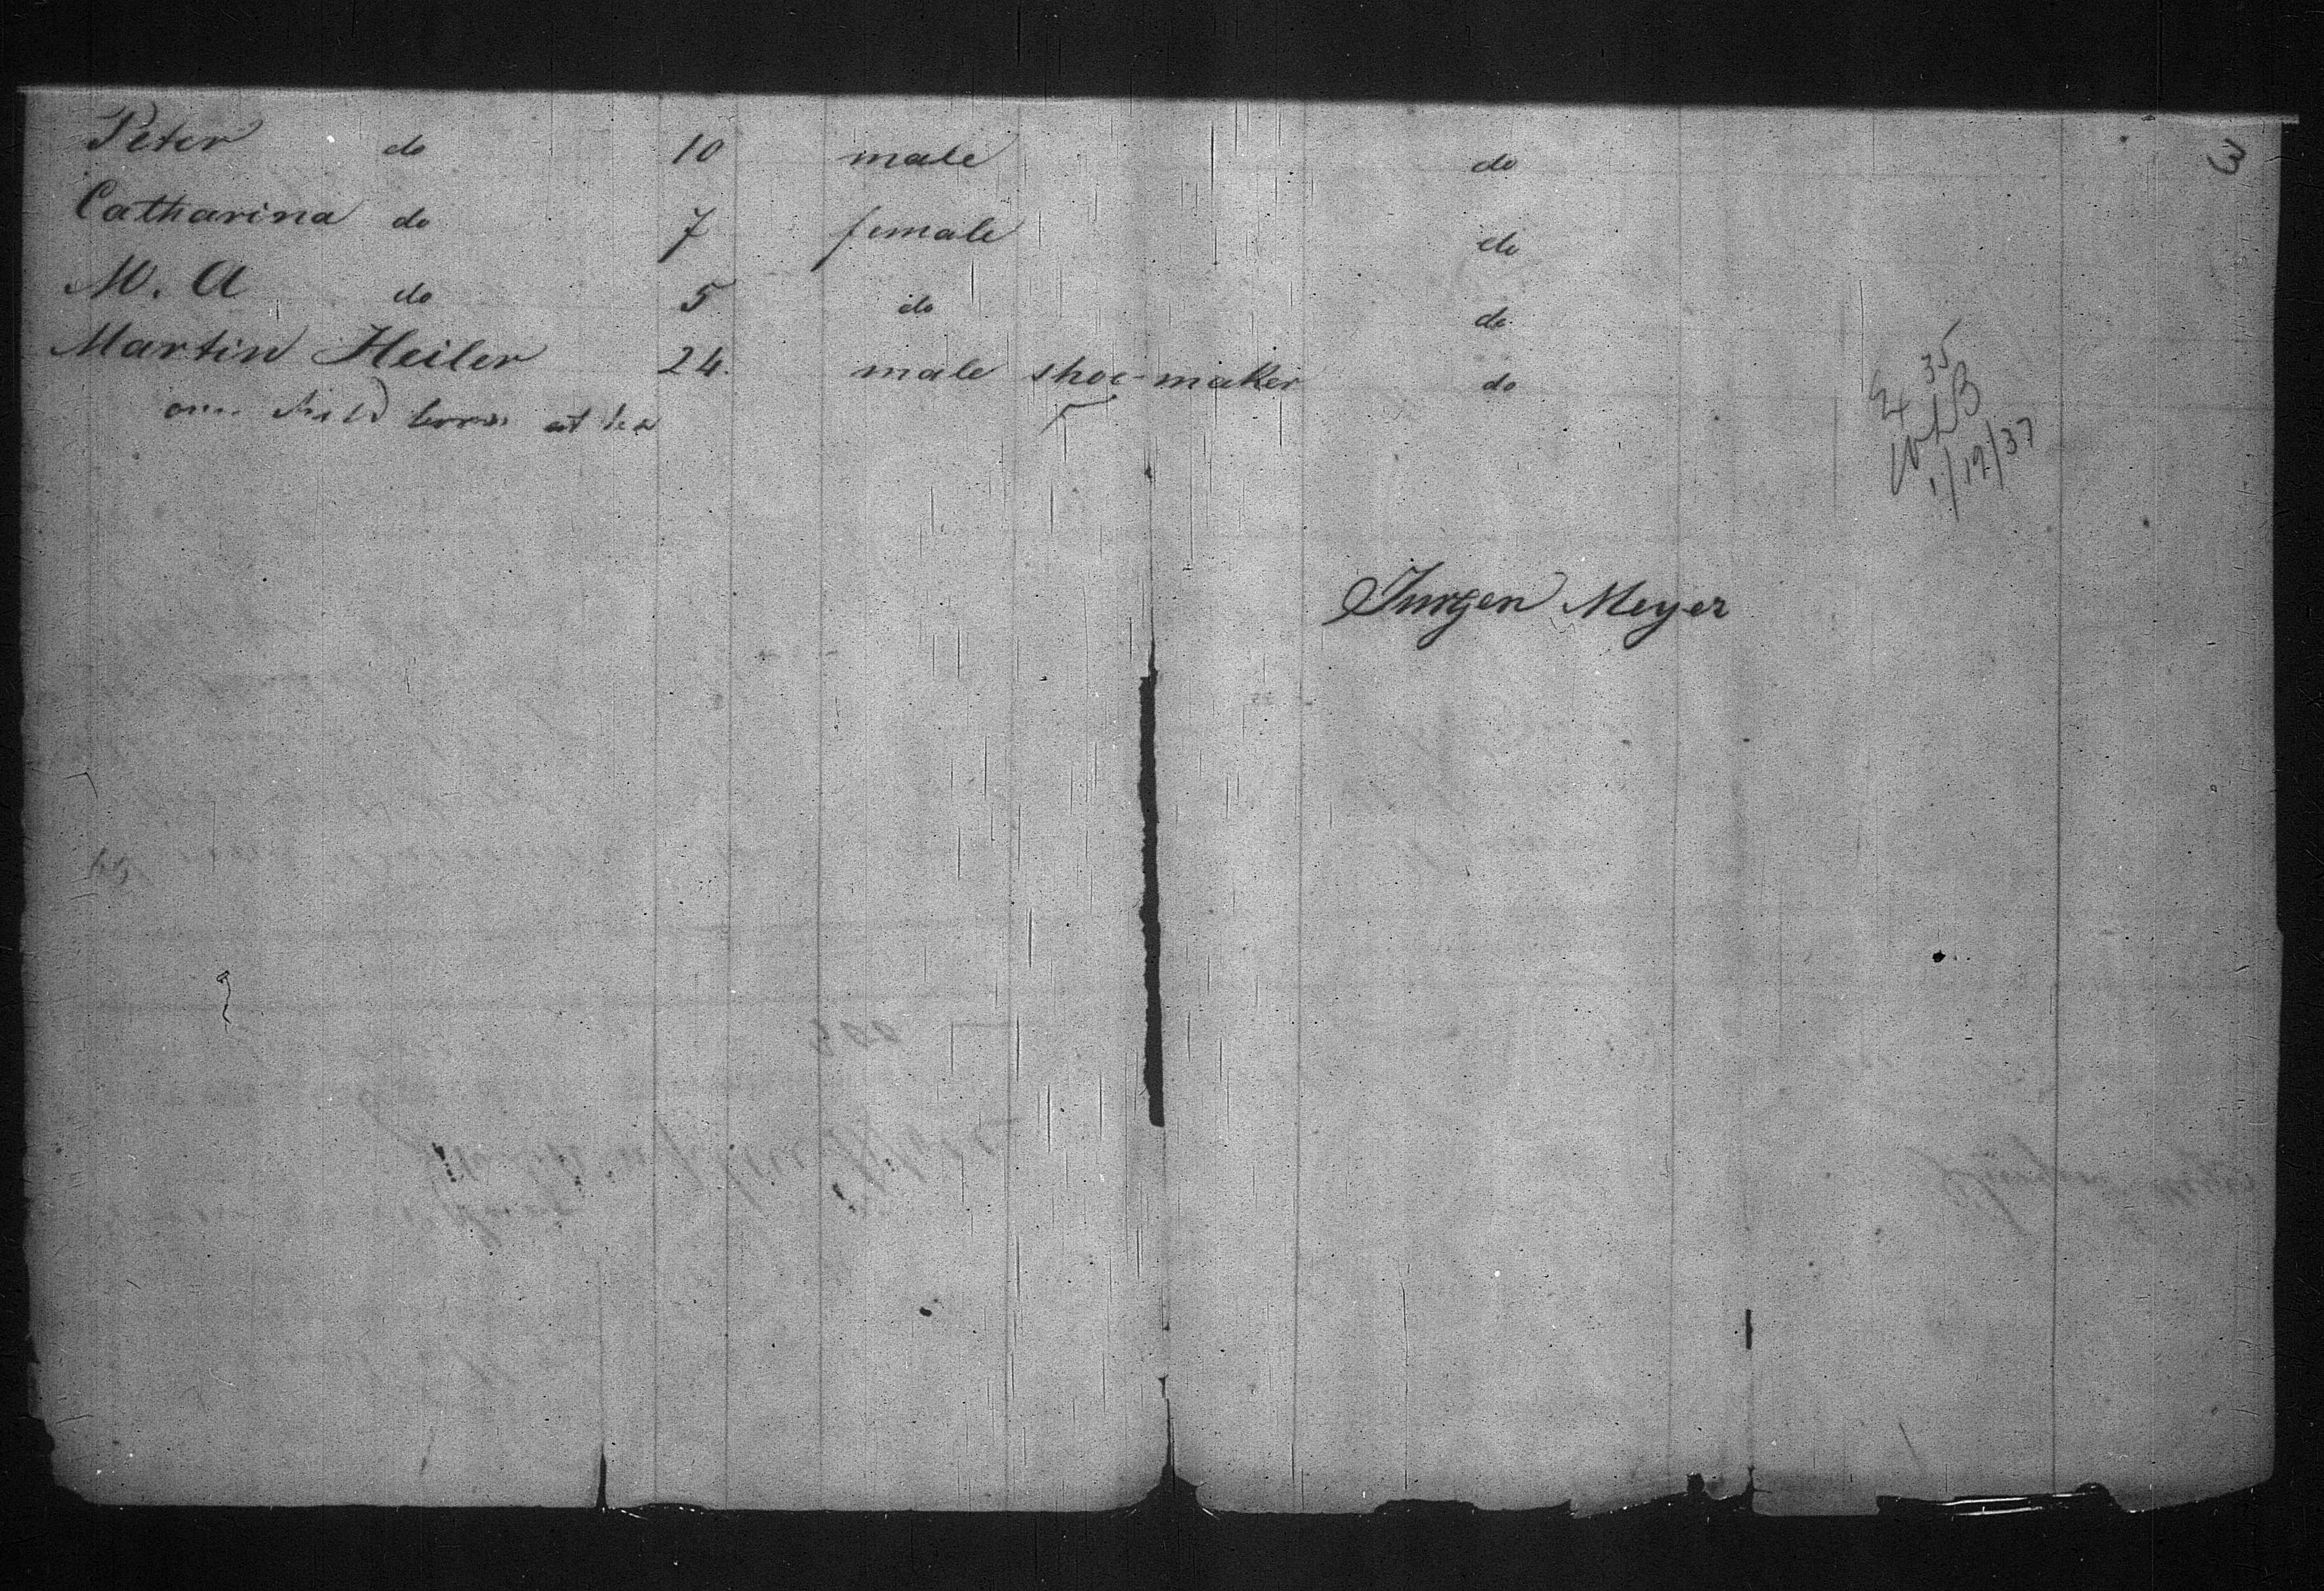 3
Peter do 10 male do
Catharina do 7 female do
M. A do 5 do do
Martin Heiler 24. male shoe-maker do
one child born at sea
35
1/12/37
Jurgen Meyer